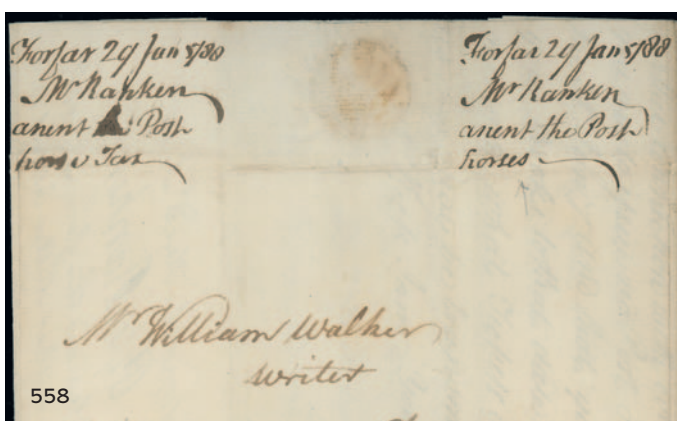 Forfar 29 Jany 88
Mr Ranken
anent the Post
horse Tax
Forfar 29 Jany 88
Mr Ranken
anent the Post
horses
Mr William Walker
writer
558